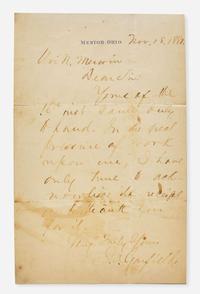 MENTOR, OHIO
Nov. 18, 1880.
Merwin
Dear Sir
Yours of the
duly
to hand. In the great
pressure of work
upon me, I have
only time to ack
nowledge its receipt
and thank you
for it.
Very Truly Yours
J. A. Garfield